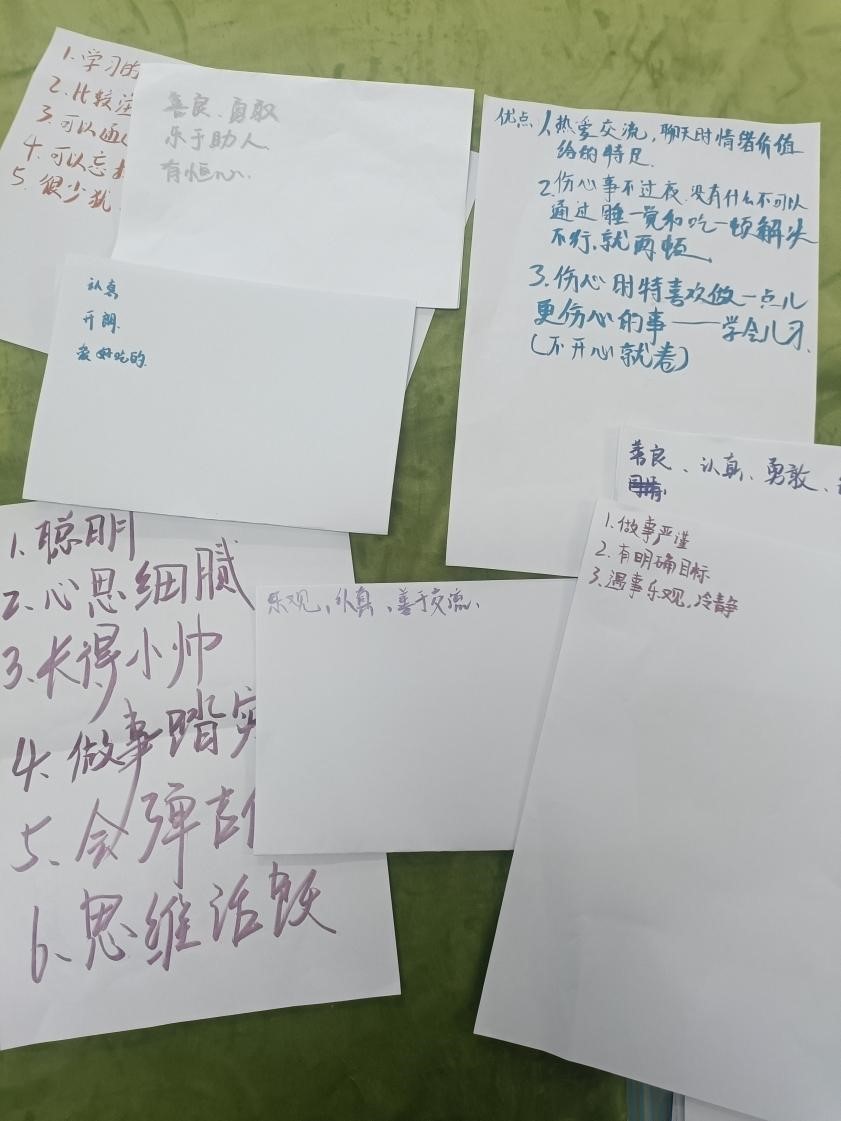 1.学习的
2.比较
3.可以通
4.可以忘
5.很少犹
善良、勇敢
乐于助人
有恒心
认真
开朗
爱好吃的
优点 1.热爱交流,聊天时情绪价值
给的特足.
2.伤心事不过夜.没有什么不可以
通过睡一觉和吃一顿解决
不行,就再顿
3.伤心时特喜欢做一点儿
更伤心的事——学会儿习.
(不开心就卷)
善良、认真、勇敢、
1.做事严谨
2.有明确目标
3.遇事乐观,冷静
1.聪明
2.心思细腻
3.长得小帅
4.做事踏实
5.会弹吉他
6.思维活跃
乐观、认真、善于交流、